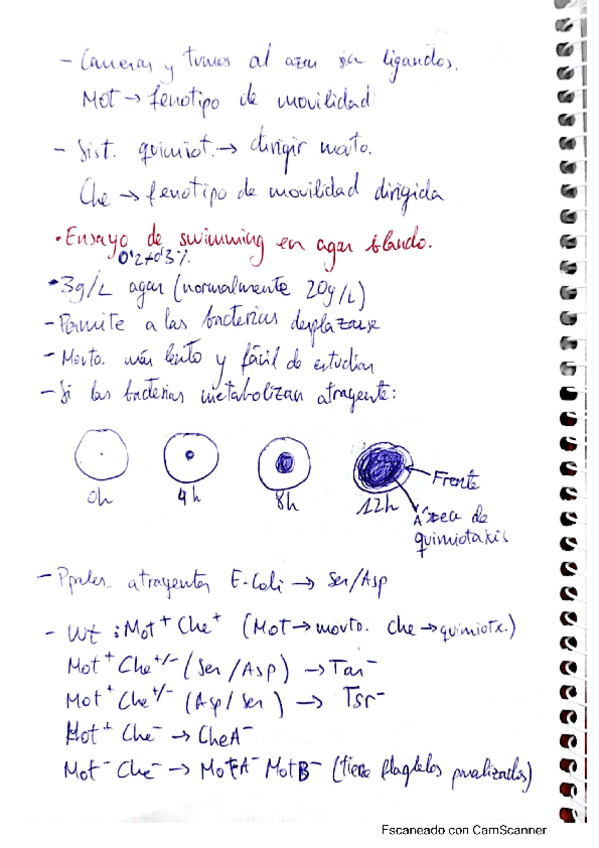 - Carreras y tumos al azar sin ligandos.
Mot → fenotipo de movilidad
- Sist. quimiot. → dirigir movto.
Che → fenotipo de movilidad dirigida
• Ensayo de swimming en agar blando.
0'2-0'3%.
• 3g/L agar (normalmente 20g/L)
- Permite a las bacterias desplazarse
- Movto. más lento y fácil de estudiar
- Si las bacterias metabolizan atrayente:
0h 4h 8h 12h
Frente
Área de
quimiotaxis
- Ppales. atrayentes E-Coli → Ser/Asp
- Wt : Mot⁺ Che⁺ (Mot → movto. Che → quimiotx.)
Mot⁺ Che⁺/⁻ (Ser/Asp) → Tar⁻
Mot⁺ Che⁺/⁻ (Asp/Ser) → Tsr⁻
Mot⁺ Che⁻ → CheA⁻
Mot⁻ Che⁻ → MotA⁻ MotB⁻ (tiene flagelos paralizados)
Escaneado con CamScanner